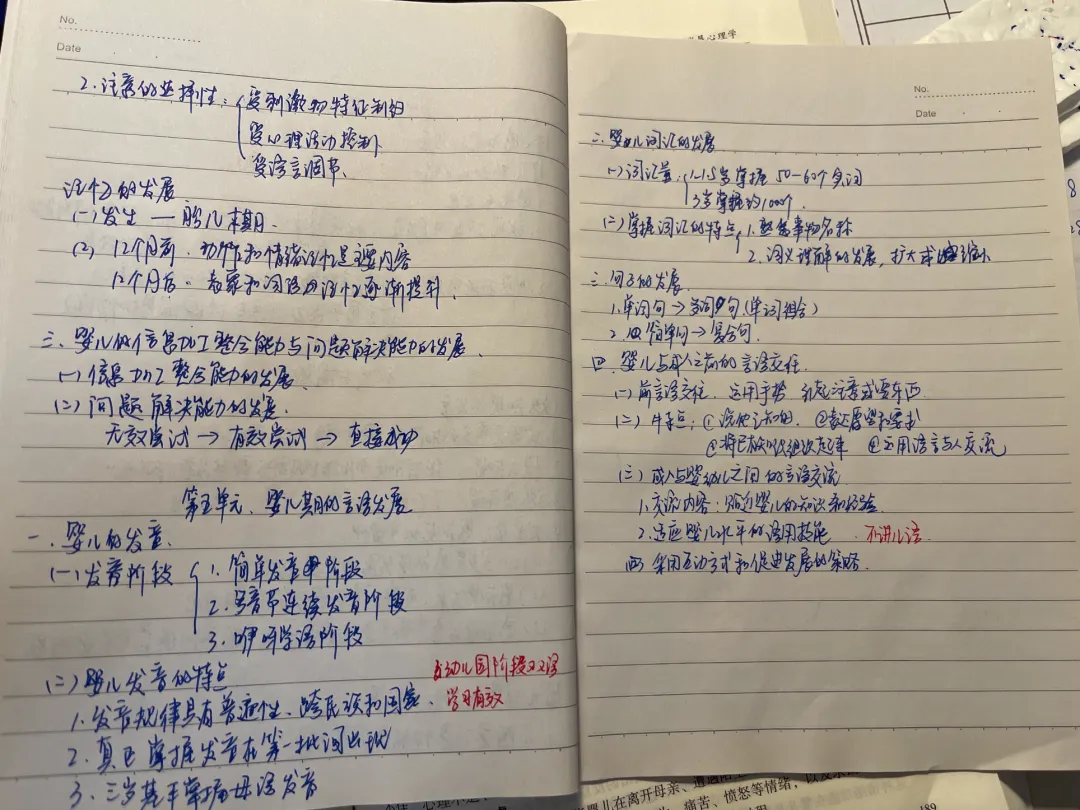 No.
Date
2.注意的选择性：受刺激物特征制约
受心理活动控制
受语言调节.
记忆的发展
(一)发生 — 胎儿末期.
(2) 12个月前.动作和情绪记忆是主要内容
12个月后.表象和词语的记忆逐渐提升.
三、婴儿的信息加工整合能力与问题解决能力的发展.
(一)信息加工整合能力的发展.
(二)问题解决能力的发展.
无效尝试→有效尝试→直接成功
第五单元、婴儿期的言语发展
一、婴儿的发音.
(一)发音阶段 1.简单发音阶段
2.多音节连续发音阶段
3.咿呀学语阶段
(二)婴儿发音的特点
幼儿园阶段双语
学习有效
1.发音规律具有普遍性、跨民族和国家.
2.真正掌握发音在第一批词出现
3.三岁基本掌握母语发音
心理学
No.
Date
二、婴儿词汇的发展
(一)词汇量：1-1.5岁掌握50-60个实词
3岁掌握约1000个
(二)掌握词汇的特点 1.熟悉事物名称
2.词义理解的发展,扩大或缩小
三.句子的发展.
1.单词句→多词句(单词组合)
2.从简单句→复合句.
四、婴儿与成人之前的言语交往
(一)前言语交往 运用手势 引起注意或要东西
(二)特点：①说他之知的 ②表达愿望和要求
起来 ④运用语言与人交流
(三)成人与婴幼儿之间的言语交流
1.交流内容：贴近婴儿的知识和经验
2.适应婴儿水平的语用技能 不讲儿语.
(四)采用互动方式和促进发展的策略.
婴儿在离开母亲、遭遇陌
痛苦、愤怒等情绪，
189